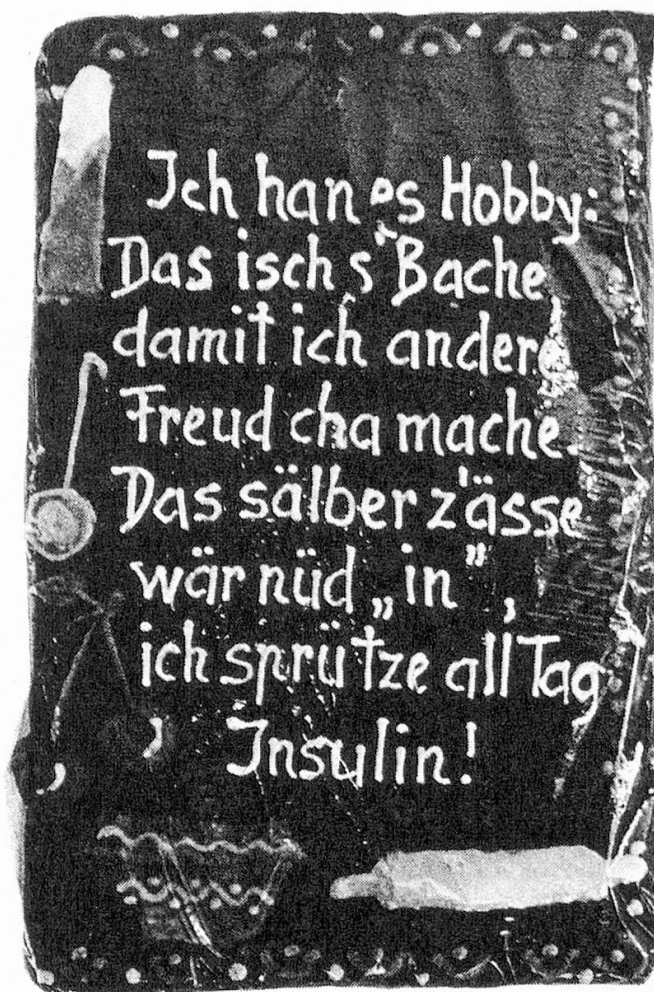 Ich han es Hobby:
Das isch s'Bache,
damit ich andere
Freud cha mache.
Das sälber z'ässe
wär nüd „in",
ich sprütze all Tag
Insulin!